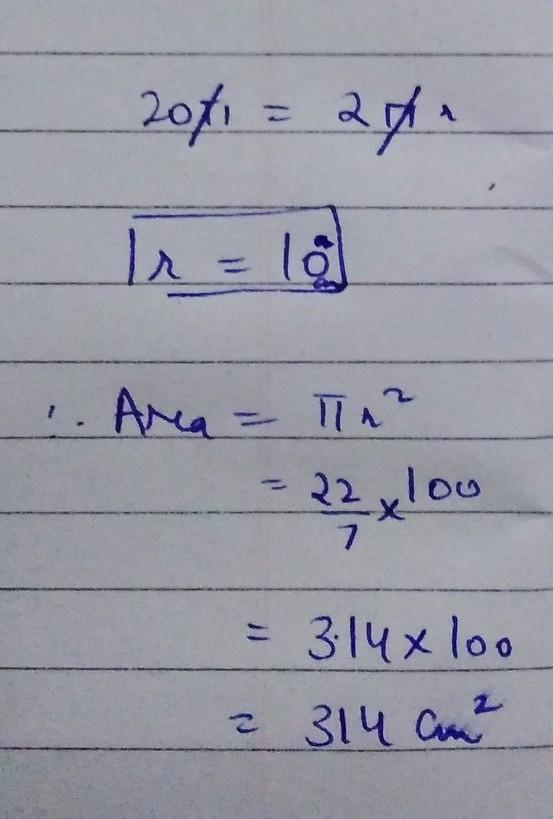 20π = 2πr
r = 10
∴ Area = πr²
= 22/7 × 100
= 3.14 × 100
= 314 cm²